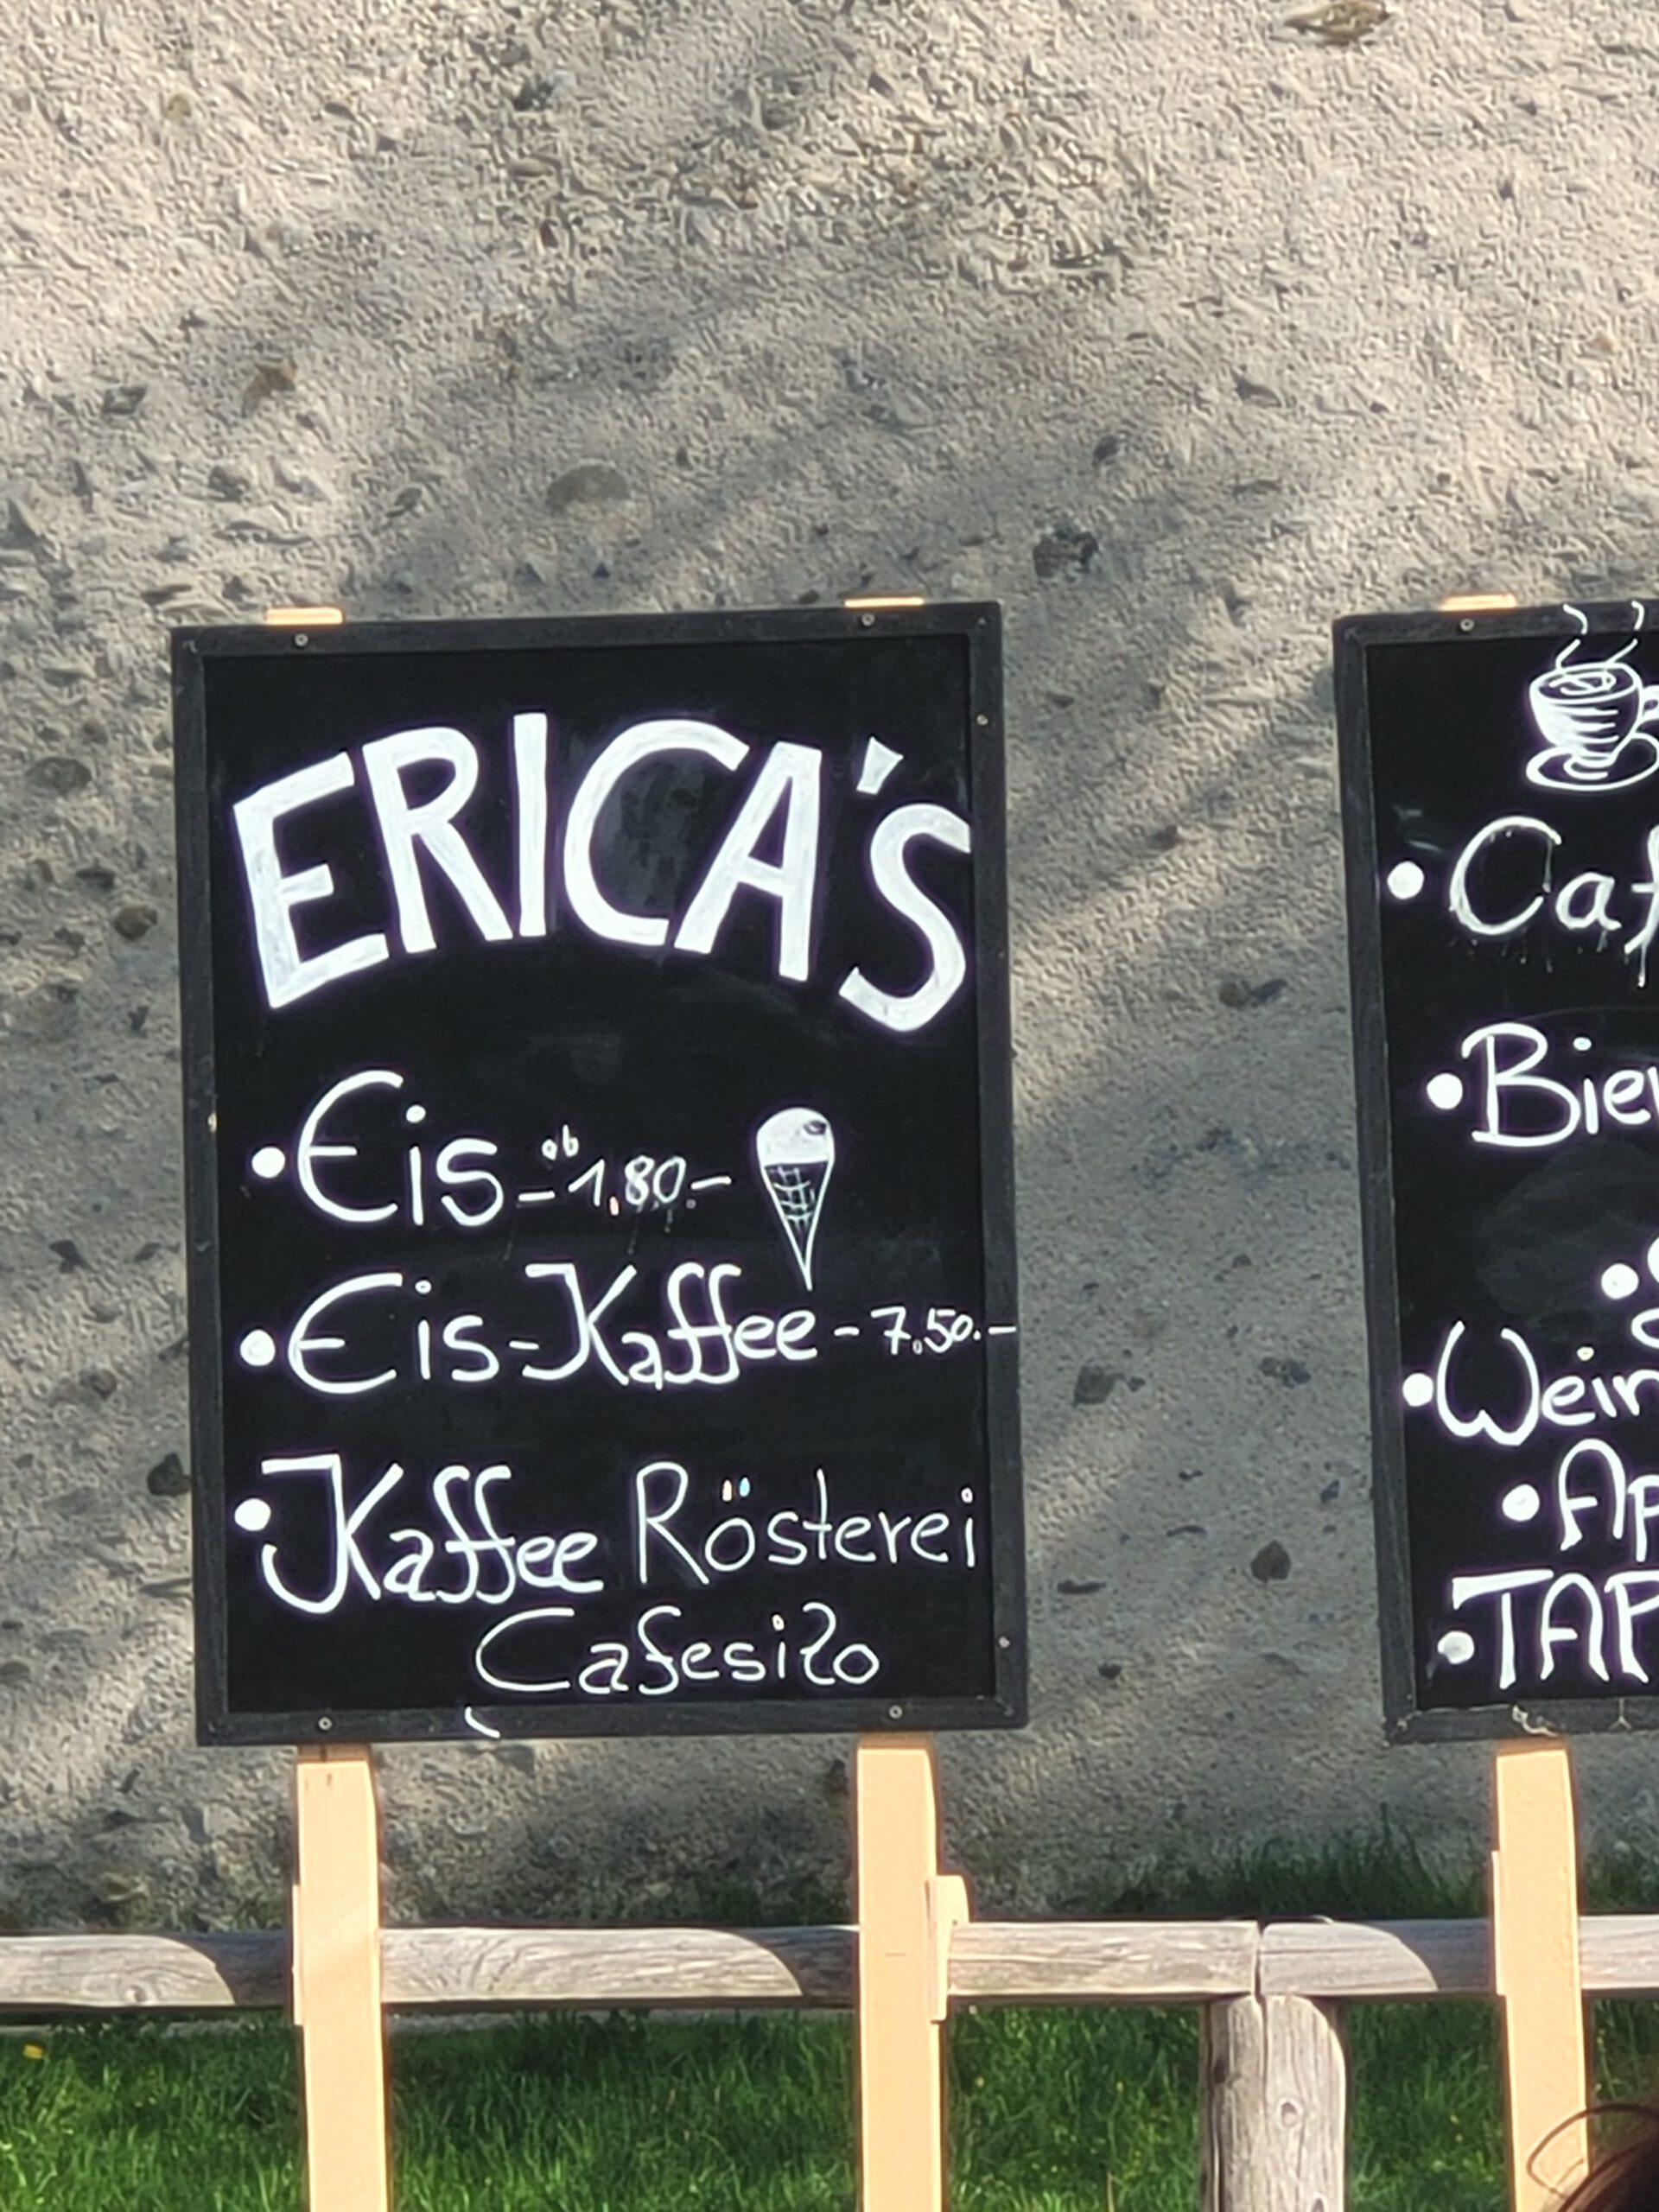 ERICA'S
• Eis - ab 1,80.-
• Eis-Kaffee - 7.50.-
• Kaffee Rösterei
Cafesito
• Caf
• Bier
• Wein
• Ap
• TAP